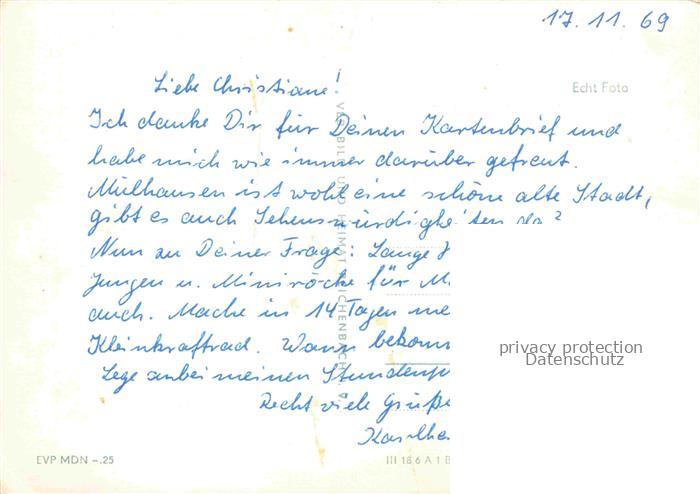 17. 11. 69
Liebe Christiane!
Echt Foto
Ich danke Dir für Deinen Kartenbrief und
habe mich wie immer darüber gefreut.
Mülhausen ist wohl eine schöne alte Stadt,
gibt es auch Sehenswürdigkeiten da?
Nun zu Deiner Frage: Lange H
Jungen u. Miniröcke für M
auch. Mache in 14 Tagen me
Kleinkraftrad. Wann bekom
Lege anbei meinen Stundenp
Recht viele Grüße
Karlhe
VEB BILD UND HEIMAT REICHENBACH
privacy protection
Datenschutz
EVP MDN –.25
III 18 6 A 1 B